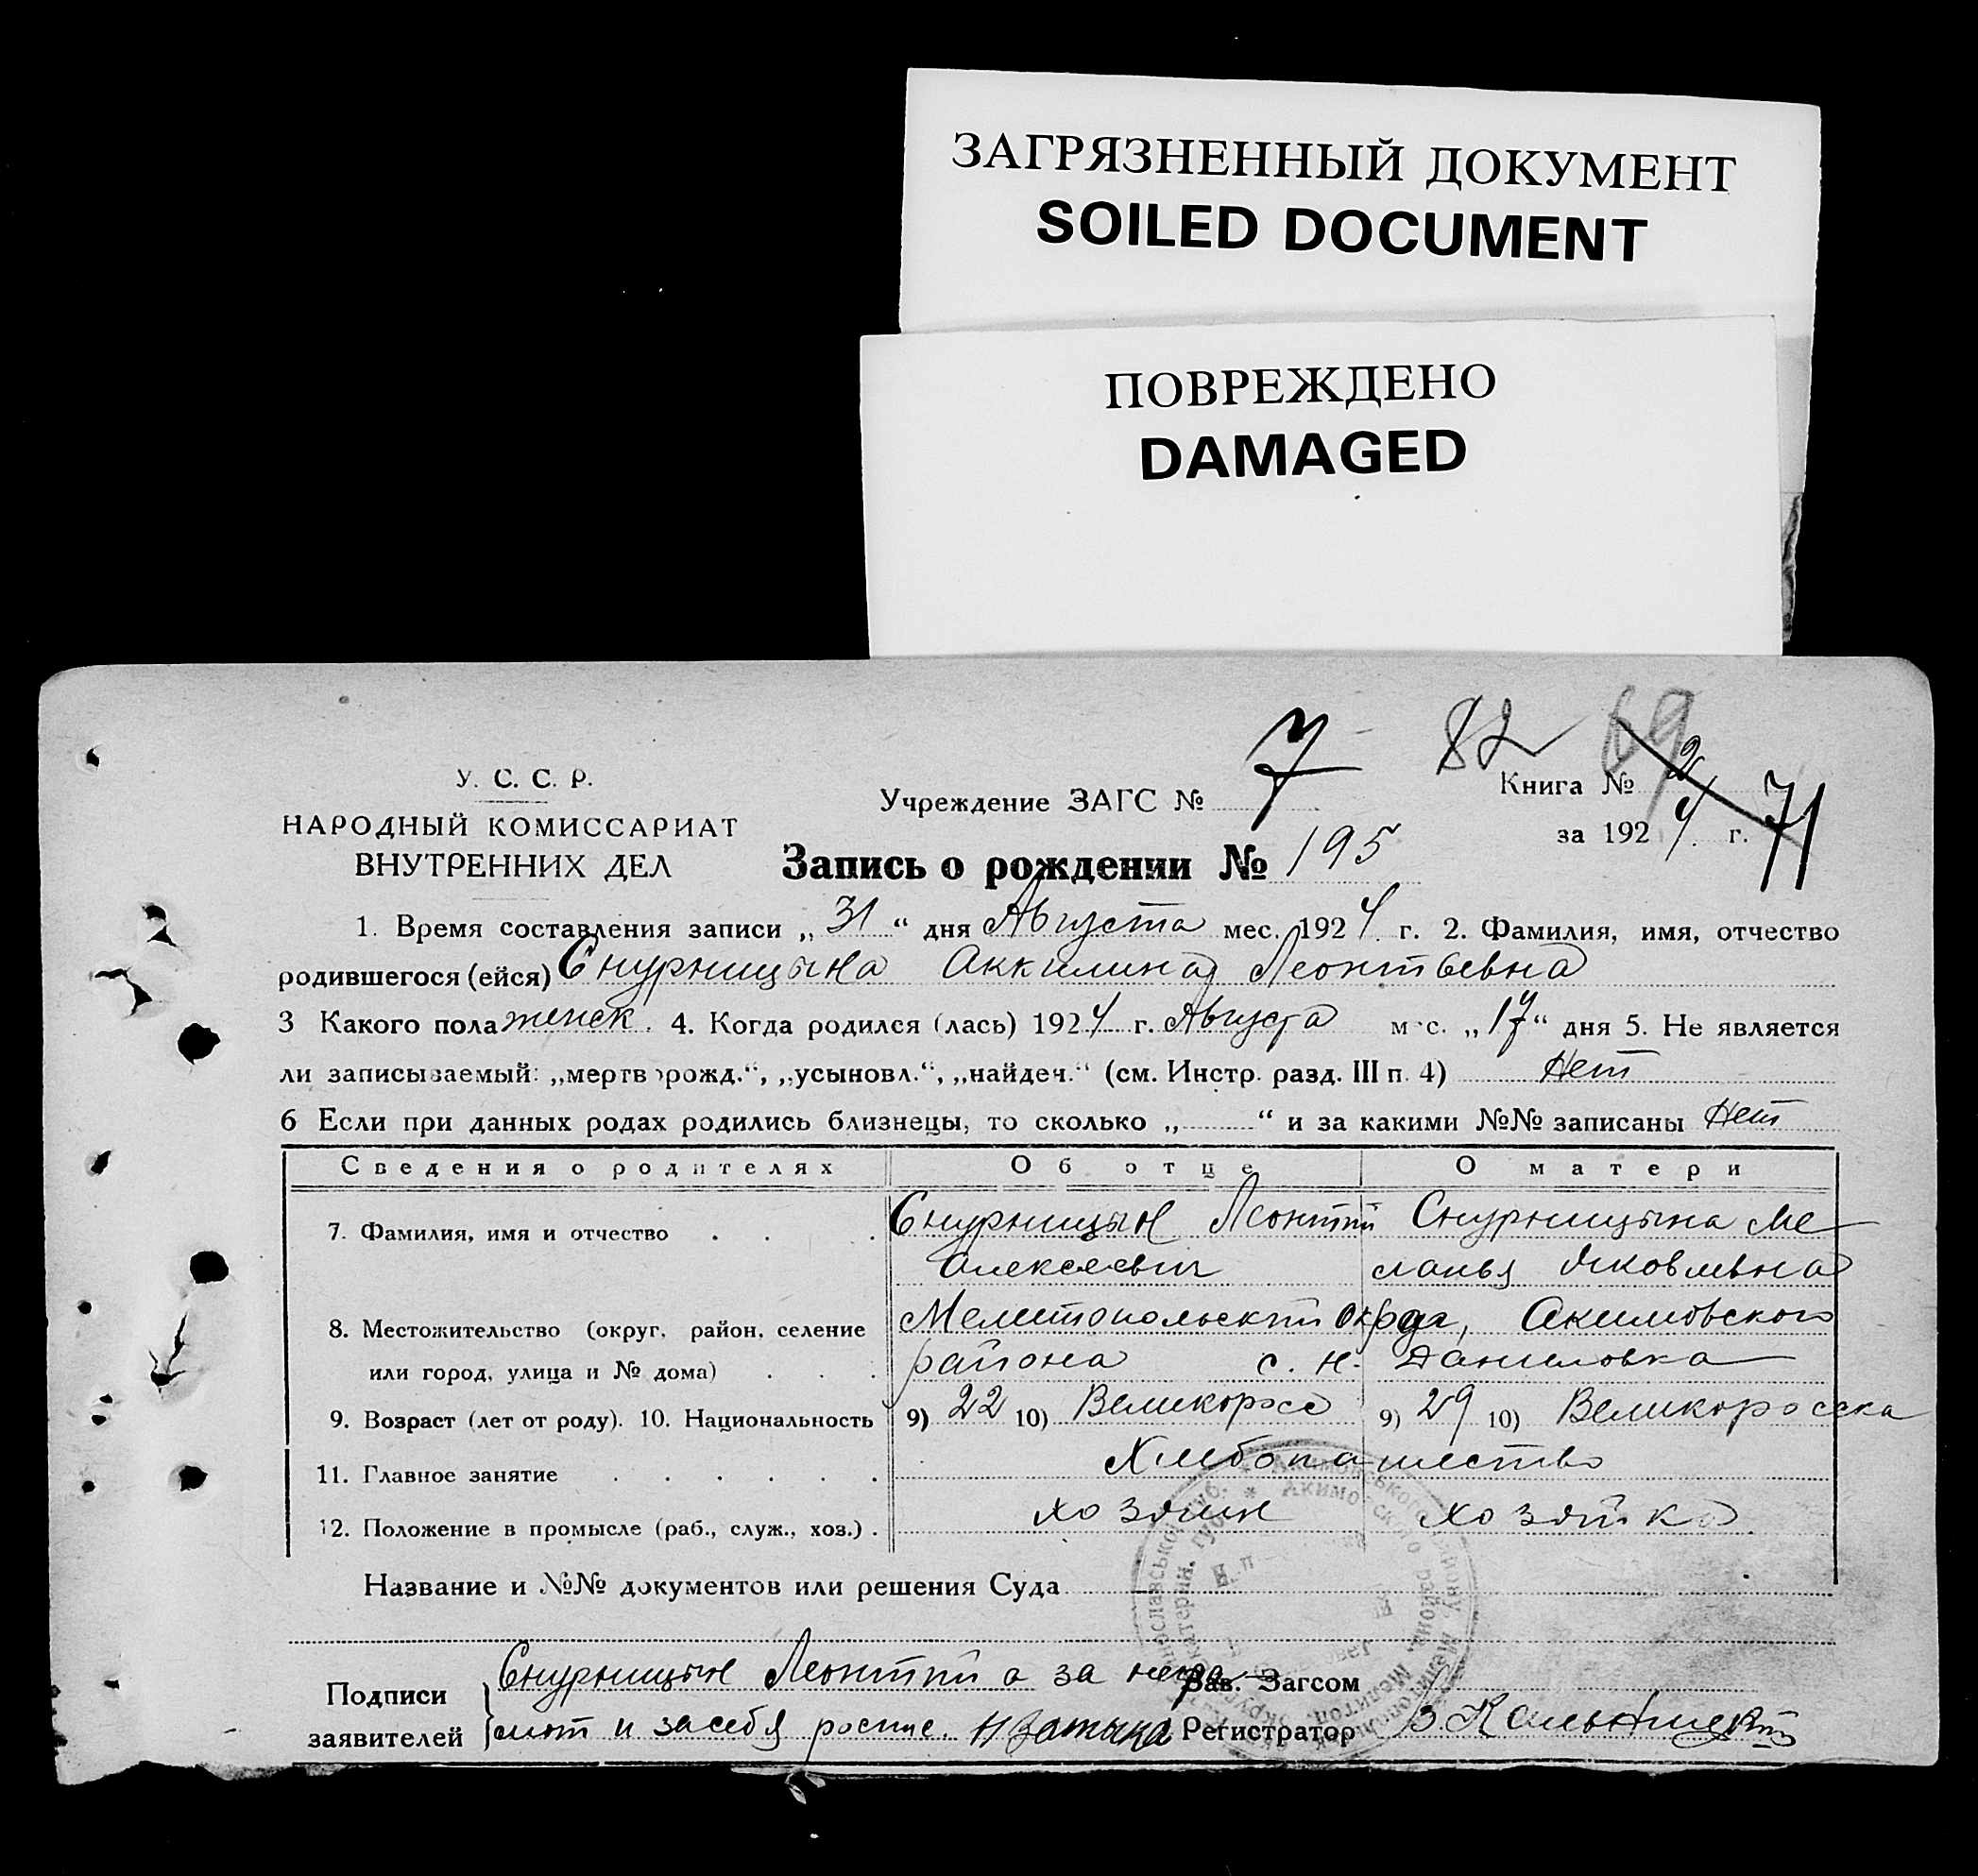 ЗАГРЯЗНЕННЫЙ ДОКУМЕНТ
SOILED DOCUMENT
ПОВРЕЖДЕНО
DAMAGED
7 82 69
У. С. С. Р.
НАРОДНЫЙ КОМИССАРИАТ
ВНУТРЕННИХ ДЕЛ
Учреждение ЗАГС №
Книга № 2
за 1924 г. 71
Запись о рождении № 195
1. Время составления записи „31“ дня Августа мес. 1924 г. 2. Фамилия, имя, отчество
родившегося (ейся) Снурницына Аккилина Леонтьевна
3 Какого пола женск. 4. Когда родился (лась) 1924 г. Августа мес. „17“ дня 5. Не является
ли записываемый: „мертворожд.“, „усыновл.“, „найден.“ (см. Инстр. разд. III п. 4) Нет
6 Если при данных родах родились близнецы, то сколько „ “ и за какими №№ записаны Нет
Сведения о родителях Об отце О матери
7. Фамилия, имя и отчество Снурницын Леонтий Снурницына Ме
Алексеевич ланья Яковлевна
8. Местожительство (округ, район, селение Мелитопольский округа, Акимовского
или город, улица и № дома) района с. Н. Даниловка
9. Возраст (лет от роду). 10. Национальность 9) 22 10) Великоросс 9) 29 10) Великоросска
11. Главное занятие Хлебопашество
12. Положение в промысле (раб., служ., хоз.) хозяин хозяйка
Название и №№ документов или решения Суда
Подписи Снурницын Леонтий а за негра Зав. Загсом
заявителей мот и засебя роспис. Регистратор В. Кальницкий